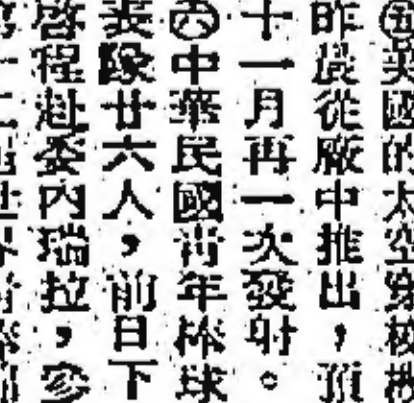 ㊄美國的太空穿梭機
昨晨從廠中推出，預
十一月再一次發射。
㊅中華民國青年棒球
表隊廿六人，前日下
啓程赴委內瑞拉，參
第一二地世界青棒